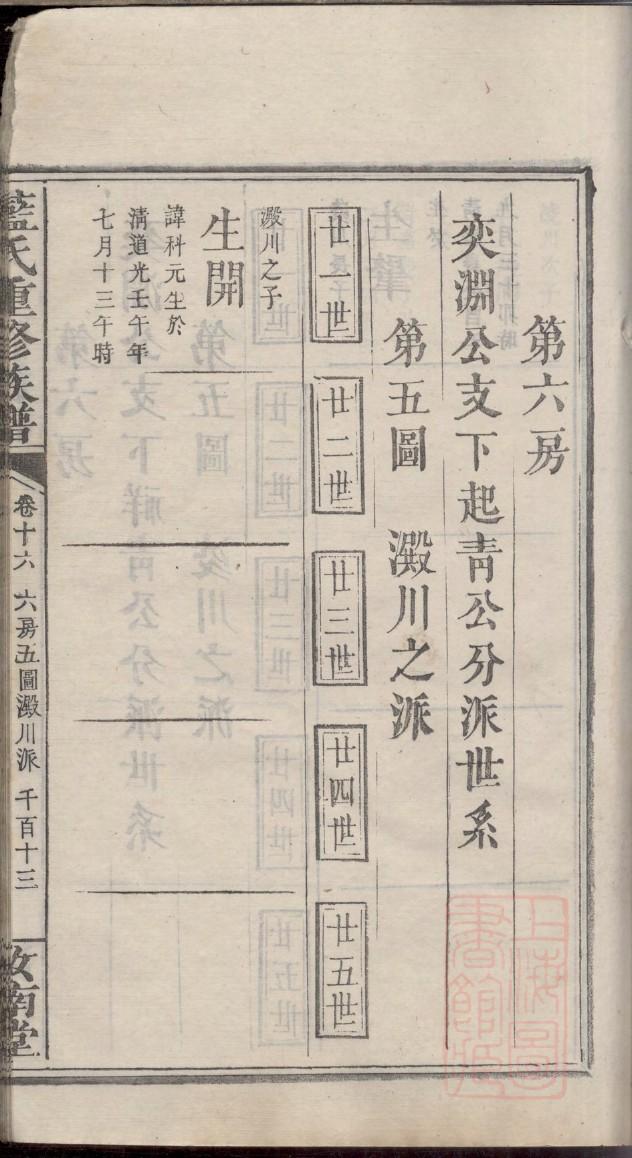 第六房
奕淵公支下起青公分派世系
第五圖　澱川之派
廿一世
廿二世
廿三世
廿四世
廿五世
澱川之子
生開
諱科元生於
清道光壬午年
七月十三午時
藍氏重修族譜
卷十六　六房五圖澱川派　千百十三
汝南堂
上海圖
書館藏